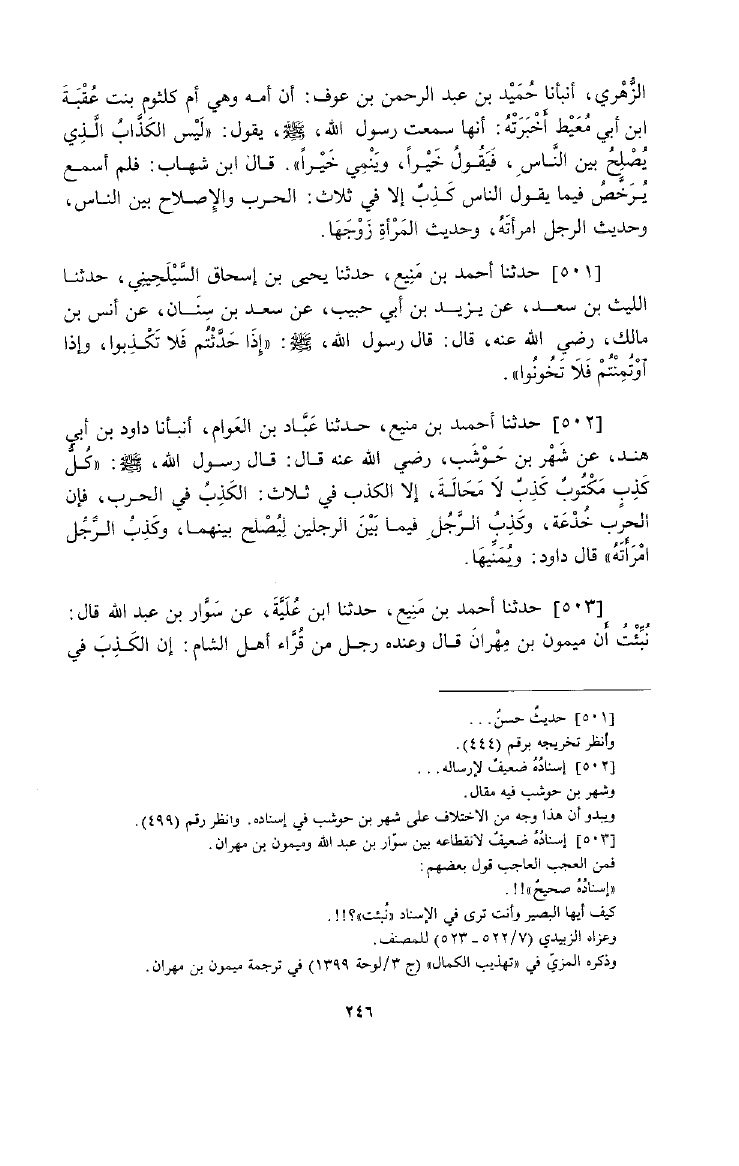 الزُّهْري، أنبأنا حُمَيْد بن عبد الرحمن بن عوف: أن أمه وهي أم كلثوم بنت عُقْبَةَ
ابن أبي مُعَيْط أَخْبَرَتْهُ: أنها سمعت رسول الله، ﷺ، يقول: «لَيْس الكَذَّابُ الَّذِي
يُصْلِحُ بين النَّاسِ، فَيَقُولُ خَيْراً، ويَنْمِي خَيْراً». قال ابن شهاب: فلم أسمع
يُرَخَّصُ فيما يقول الناس كَذِبٌ إلا في ثلاث: الحرب والإصلاح بين الناس،
وحديث الرجل امرأتَهُ، وحديث المَرْأةِ زَوْجَهَا.
[٥٠١] حدثنا أحمد بن مَنِيع، حدثنا يحيى بن إسحاق السَّيْلَحِيني، حدثنا
الليث بن سعد، عن يزيد بن أبي حبيب، عن سعد بن سِنَان، عن أنس بن
مالك، رضي الله عنه، قال: قال رسول الله، ﷺ: «إِذَا حَدَّثْتُم فَلا تَكْذِبوا، وإذا
اؤتُمِنْتُمْ فَلَا تَخُونُوا».
[٥٠٢] حدثنا أحمد بن منيع، حدثنا عَبَّاد بن العَوام، أنبأنا داود بن أبي
هند، عن شَهْر بن حَوْشَب، رضي الله عنه قال: قال رسول الله، ﷺ: «كُلُّ
كَذِبٍ مَكْتُوبٌ كَذِبٌ لاَ مَحَالَةَ، إلا الكذب في ثلاث: الكَذِبُ في الحرب، فإن
الحرب خُدْعَة، وكَذِبُ الرَّجُلِ فيما بَيْنَ الرجلين لِيُصْلح بينهما، وكَذِبُ الرَّجُل
امْرَأَتَهُ» قال داود: ويُمَنِّيهَا.
[٥٠٣] حدثنا أحمد بن مَنِيع، حدثنا ابن عُلَيَّةَ، عن سَوَّار بن عبد الله قال:
نُبِّئْتُ أن ميمون بن مِهْرانَ قال وعنده رجل من قُرَّاء أهل الشام: إن الكَذِبَ في
[٥٠١] حديثٌ حسنٌ...
وأنظر تخريجه برقم (٤٤٤).
[٥٠٢] إسنادُهُ ضعيفٌ لإرساله...
وشهر بن حوشب فيه مقال.
ويبدو أن هذا وجه من الاختلاف على شهر بن حوشب في إسناده. وانظر رقم (٤٩٩).
[٥٠٣] إسنادُهُ ضعيفٌ لانقطاعه بين سوّار بن عبد الله وميمون بن مهران.
فمن العجب العاجب قول بعضهم:
«إسنادُهُ صحيحٌ»!!.
كيف أيها البصير وأنت ترى في الإسناد «نُبئت»؟!!.
وعزاه الزبيدي (٧/ ٥٢٢ - ٥٢٣) للمصنف.
وذكره المزيّ في «تهذيب الكمال» (ج ٣/ لوحة ١٣٩٩) في ترجمة ميمون بن مهران.
٢٤٦